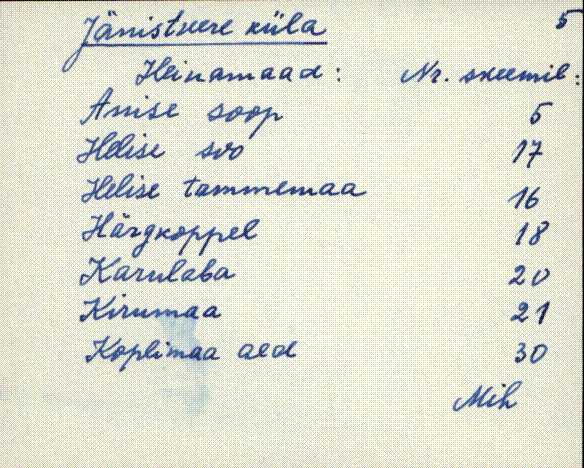 Jänistvere küla 5
Heinamaad: Nr. skeemil:
Anise soop 5
Helise soo 17
Helise tammemaa 16
Härgkoppel 18
Karulaba 20
Kirumaa 21
Koplimaa aed 30
Mih